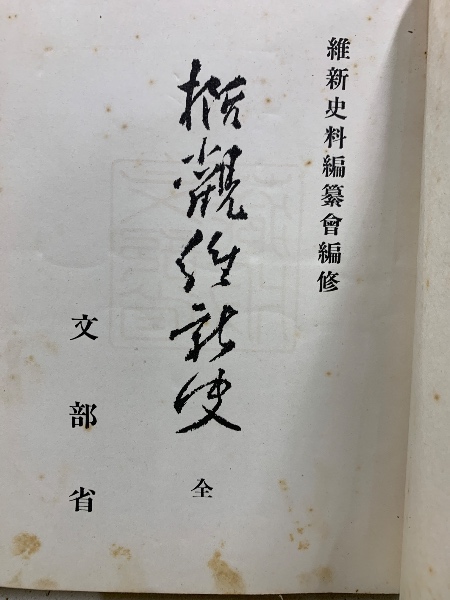 維新史料編纂會編修
概觀維新史
全
文部省